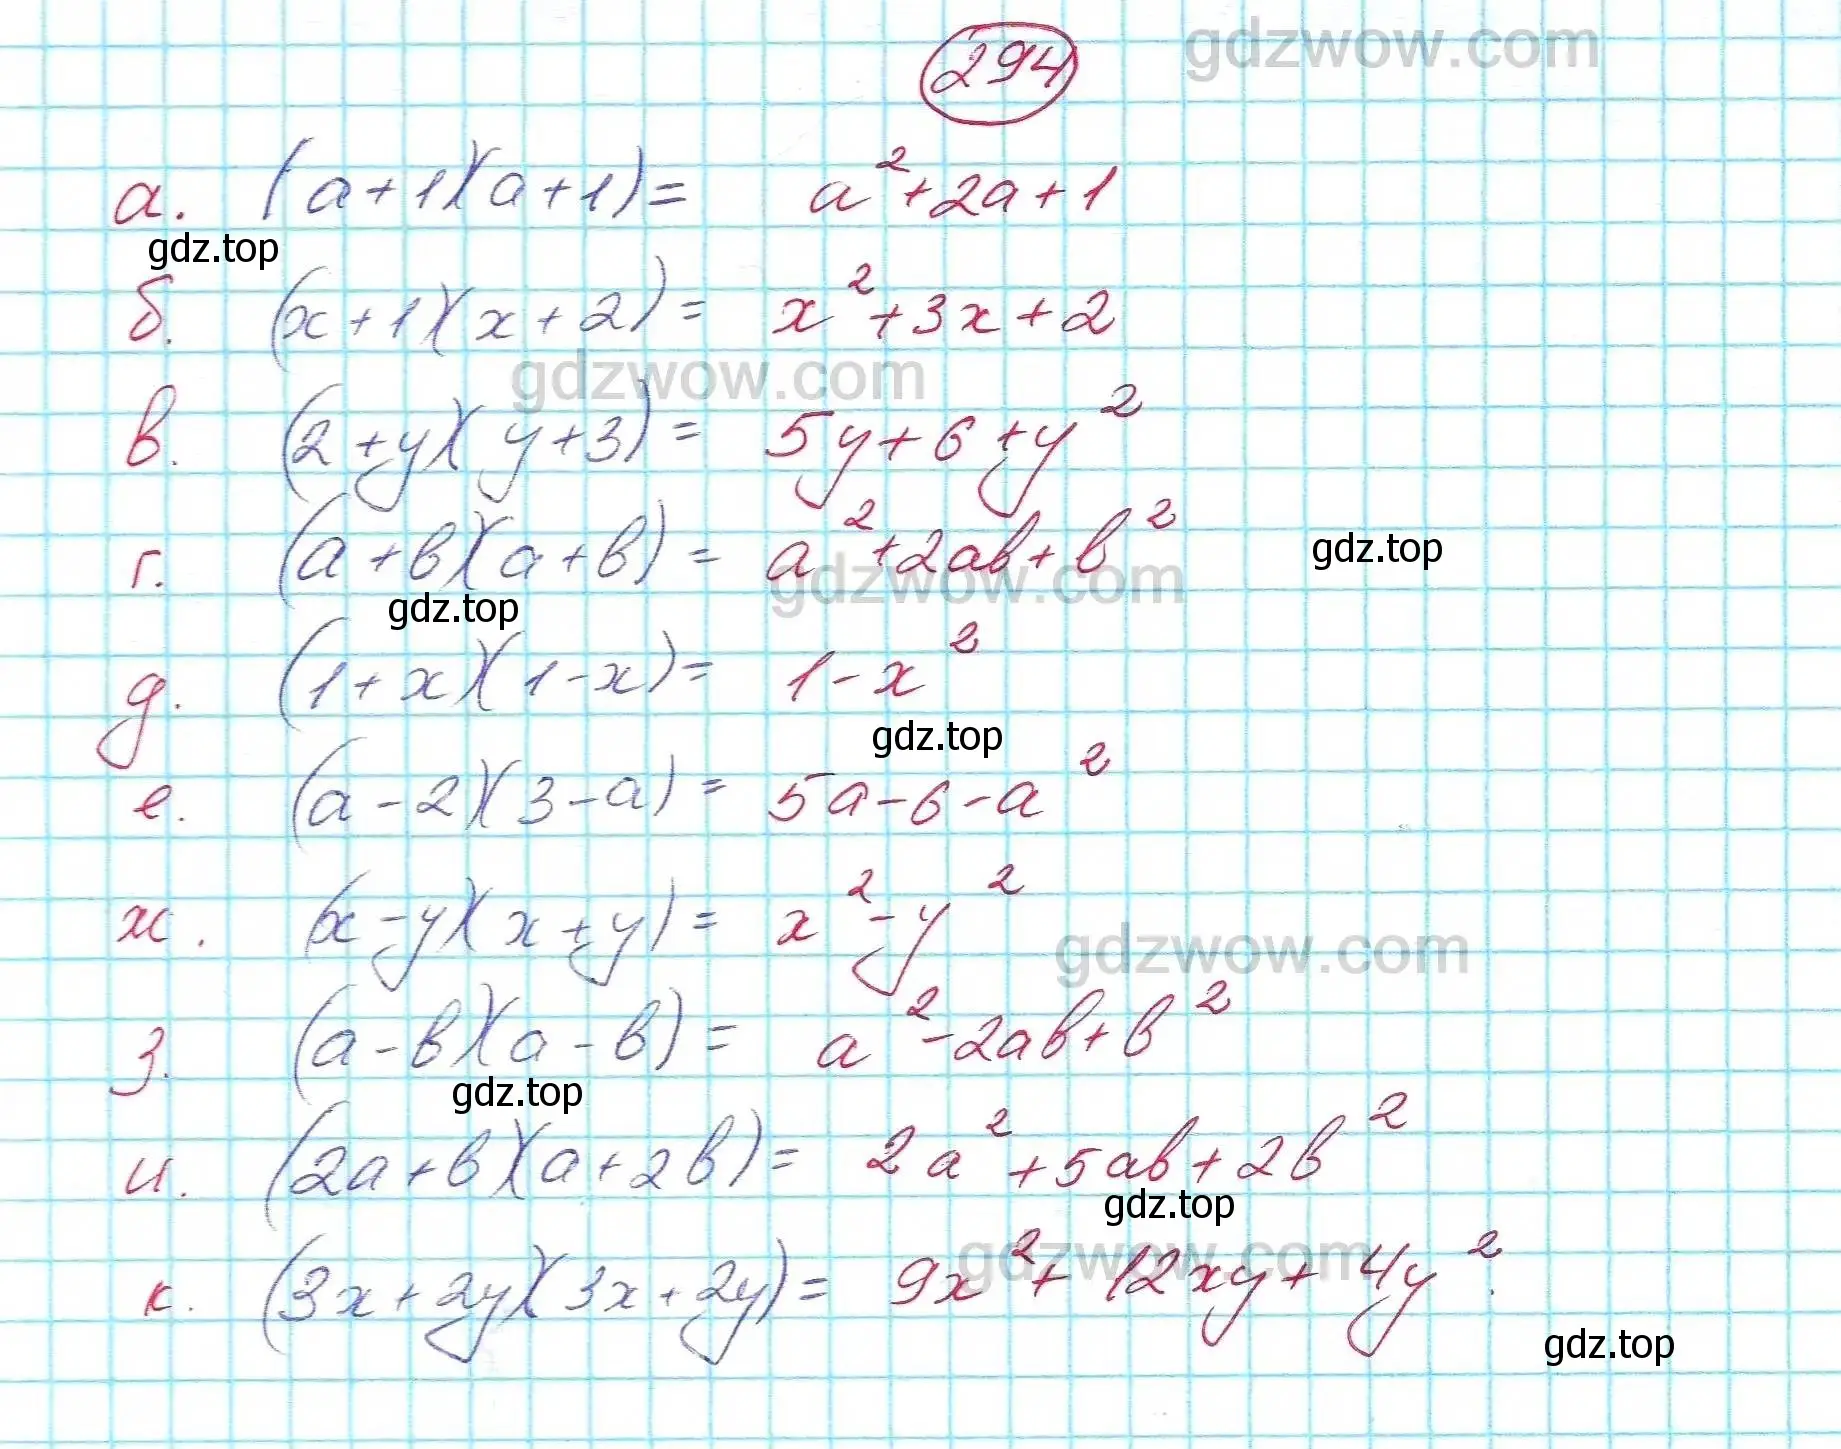 294 gdzwow.com
а. (a+1)(a+1)= a²+2a+1
gdz.top
б. (x+1)(x+2)= x²+3x+2
gdzwow.com
в. (2+y)(y+3)= 5y+6+y²
г. (a+b)(a+b)= a²+2ab+b² gdz.top
gdz.top gdzwow.com
д. (1+x)(1-x)= 1-x²
gdz.top
е. (a-2)(3-a)= 5a-6-a²
ж. (x-y)(x+y)= x²-y²
gdzwow.com
з. (a-b)(a-b)= a²-2ab+b²
gdz.top
и. (2a+b)(a+2b)= 2a²+5ab+2b²
gdz.top
gdzwow.com
к. (3x+2y)(3x+2y)= 9x²+12xy+4y².
gdz.top